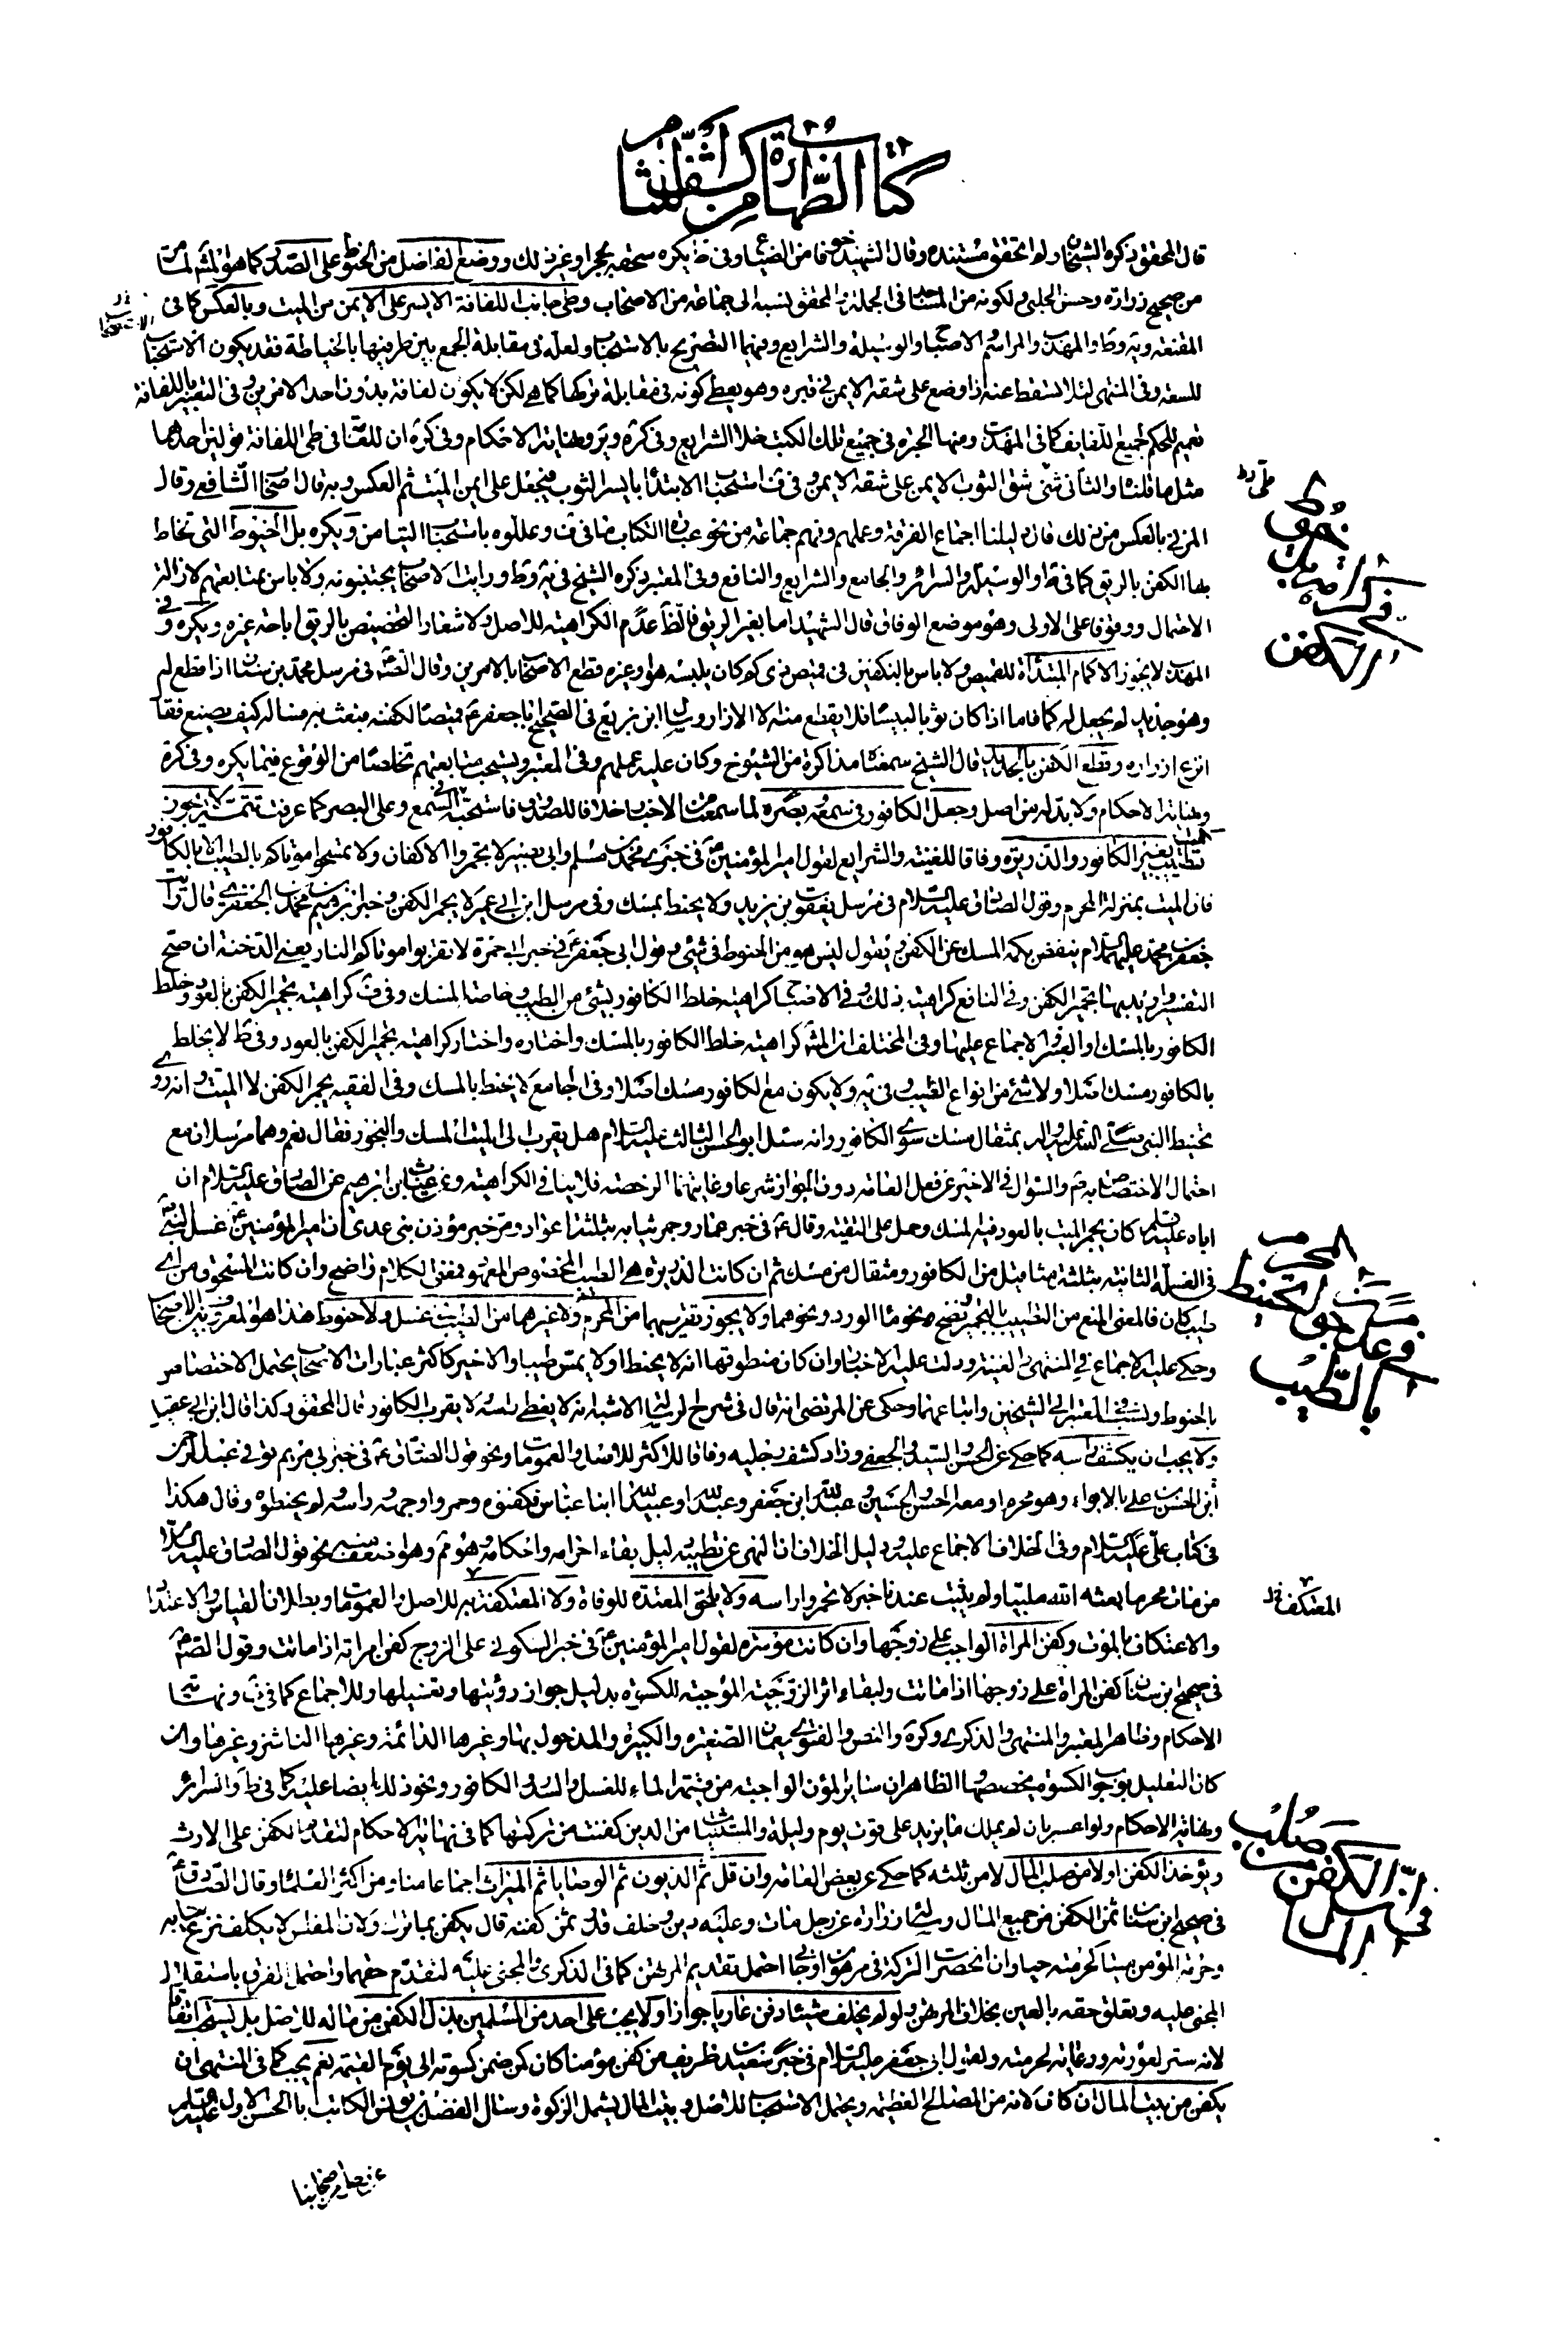 كتاب الطهارة من كشف اللثام
قال المحقق ذكره الشيخان ولم اتحقق مستنده وقال الشهيد خوفا من الضياع وفي ط يكره سحقه بحجر او غير ذلك ووضع الفاضل من الحنوط على الصدر كما هو المشهور لما مر
من صحيح زرارة وحسن الحلبي ولكونه من المساجد في الجملة والمحقق نسبه الى جماعة من الاصحاب وطي جانب اللفافة الايسر على الايمن من الميت وبالعكس كما في
المقنعة ويه وط والمهذب والمراسم والاصباح والوسيلة والشرايع وفيهما التصريح بالاستحباب ولعله في مقابلة الجمع بين طرفيها بالخياطة فقد يكون الاستحباب
للسعة وفي المنتهى لئلا تسقط عنه اذا وضع على شقه الايمن في قبره وهو يعطي كونه في مقابلة تركها كما هي لكن لا يكون لفافة بدون احد الامرين وفي التعبير باللفافة
تعميم للحكم لجميع اللفايف كما في المهذب ومنها الحبرة في جميع تلك الكتب خلا الشرايع وفي كره وير ونهاية الاحكام وفي كره ان للعامة في طي اللفافة قولين احدهما
مثل ما قلناه والثاني ثنى شق الثوب الايمن على شقه الايمن وفي ف استحباب الابتداء بايسر الثوب فيجعل على ايمن الميت ثم العكس وبه قال اصحاب الشافعي وقال
المزني بالعكس من ذلك قال دليلنا اجماع الفرقة وعملهم وفهم جماعة من نحو عبارة الكتاب ما في ف وعللوه باستحباب التيامن ويكره بل الخيوط التي تخاط
بها الكفن بالريق كما في ط والوسيلة والسرائر والجامع والشرايع والنافع وفي المعتبر ذكره الشيخ في يه وط ورايت الاصحاب يجتنبونه ولا باس بمتابعتهم لازالة
الاحتمال ووقوفا على الاولى وهو موضع الوفاق قال الشهيد اما بغير الريق فالظاهر عدم الكراهية للاصل ولاشعار التخصيص بالريق اباحة غيره ويكره وفي
المهذب لا يجوز الاكمام المبتداة للقميص ولا باس بالتكفين في قميص ذي كم كان يلبسه هو او غيره قطع الاصحاب بالامرين وقال الصادق ع في مرسل محمد بن سنان اذا قطع له
وهو جديد لم يجعل له كما فاما اذا كان ثوبا لبيسا فلا يقطع منه الا الازرار وسال ابن بزيع في الصحيح ابا جعفر ع قميصا لكفنه فبعث به فساله كيف يصنع فقال
انزع ازراره وقطع الكفن بالحديد قال الشيخ سمعناه مذاكرة من الشيوخ وكان عليه عملهم وفي المعتبر ويستحب متابعتهم تخلصا من الوقوع فيما يكره وفي كره
ونهاية الاحكام ولا بد له من اصل وجعل الكافور في سمعه وبصره لما سمعت من الاخبار خلافا للصدوق فاستحبه في السمع وعلى البصر كما عرفت تتمة لا يجوز
تطييب الميت بغير الكافور والذريرة وفاقا للغنية والشرايع لقول امير المؤمنين ع في خبري محمد بن مسلم وابي بصير لا تجمروا الاكفان ولا تمسحوا موتاكم بالطيب الا بالكافور
فان الميت بمنزلة المحرم وقول الصادق عليه السلام في مرسل يعقوب بن يزيد ولا يحنط بمسك وفي مرسل ابن ابي عمير لا يجمر الكفن وخبر ابراهيم بن محمد الجعفري قال رايت
جعفر بن محمد عليهما السلام ينفض بكمه المسك عن الكفن ويقول ليس هو من الحنوط في شيء وقول ابي جعفر ع في خبر ابي حمزة لا تقربوا موتاكم النار يعني الدخنة ان صح
التفسير او يديهما تجمير الكفن وفي النافع كراهية ذلك وفي الاصباح كراهية خلط الكافور بشيء من الطيب وخاصة المسك وفي ف كراهية تجمير الكفن بالعود وخلط
الكافور بالمسك او العنبر والاجماع عليهما وفي المختلف ان المشهور كراهية خلط الكافور بالمسك واختاره واختار كراهية تجمير الكفن بالعود وفي ط لا يخلط
بالكافور مسك اصلا ولا شيء من انواع الطيب وفي يه ولا يكون مع الكافور مسك اصلا وفي الجامع لا يحنط بالمسك وفي الفقيه يجمر الكفن لا الميت وانه روي
تحنيط النبي صلى الله عليه واله بمثقال مسك سوى الكافور وانه سئل ابو الحسن الثالث عليه السلام هل يقرب الى الميت المسك والبخور فقال نعم وهما مرسلان مع
احتمال الاختصاص به ص والسؤال في الاخير عن فعل العامة دون الجواز شرعا وغايتهما الرخصة فلا ينافي الكراهية وعن غياث بن ابراهيم عن الصادق عليه السلام ان
اباه عليه السلام كان يجمر الميت بالعود فيه المسك وحمل على التقية وقال ع في خبر عمار وجمر ثيابه بثلثة اعواد ومر خبر مؤذن بني عدي ان امير المؤمنين ع غسل النبي ص
في الغسلة الثانية بثلثة مثاقيل من الكافور ومثقال من مسك ثم ان كانت الذريرة هي الطيب المخصوص المعهود فمعنى الكلام واضح وان كانت المسحوق من اي
طيب كان فالمعنى المنع من التطييب بالتجمير ونضح نحو ماء الورد ونحوهما ولا يجوز تقريبهما من المحرم ولا غيرهما من الطيب في غسل ولا حنوط هذا هو المعروف بين الاصحاب
وحكي عليه الاجماع في المنتهى والغنية ودلت عليه الاخبار وان كان منطوقها انه لا يحنط او لا يمس طيبا والاخير كاكثر عبارات الاصحاب يحتمل الاختصاص
بالحنوط ونسب في المعتبر الى الشيخين واتباعهما وحكى عن المرتضى انه قال في شرح الرسالة الاشبه انه لا يغطى راسه ولا يقرب الكافور قال المحقق وكذا قال ابن ابي عقيل
ولا يجب ان يكشف راسه كما حكي عن الحسن والسيد والجعفي وزاد كشف رجليه وفاقا للاكثر للاصل والعمومات ونحو قول الصادق ع في خبر ابي مريم توفي عبد الرحمن
ابن الحسن بن علي بالابواء وهو محرم ومعه الحسن والحسين وعبد الله ابن جعفر وعبد الله وعبيد الله ابنا عباس فكفنوه وخمروا وجهه وراسه ولم يحنطوه وقال هكذا
في كتاب علي عليه السلام وفي الخلاف الاجماع عليه ودليل الخلاف ان النهي عن تطييبه دليل بقاء احرامه واحكامه وهو ثم وهو ضعيف نحو قول الصادق عليه السلام
من مات محرما بعثه الله ملبيا ولم يثبت عندنا خبر لا تخمروا راسه ولا يلحق المعتدة للوفاة ولا المعتكف به للاصل والعمومات وبطلان القياس والاعتداد
والاعتكاف بالموت وكفن المراة الواجب على زوجها وان كانت موسرة لقول امير المؤمنين ع في خبر السكوني على الزوج كفن امراته اذا ماتت وقول الصادق ع
في صحيح ابن سنان كفن المراة على زوجها اذا ماتت ولبقاء اثر الزوجية الموجبة للكسوة بدليل جواز رؤيتها وتغسيلها وللاجماع كما في ف ونهاية
الاحكام وظاهر المعتبر والمنتهى والذكرى وكره والنص والفتوى يعمان الصغيرة والكبيرة والمدخول بها وغيرها الدائمة وغيرها الناشز وغيرها وان
كان التعليل بوجوب الكسوة يخصصها الظاهر ان سائر المؤن الواجبة من قيمة الماء للغسل والسدر والكافور ونحو ذلك ايضا عليه كما في ط والسرائر
ونهاية الاحكام ولو اعسر بان لم يملك ما يزيد على قوت يوم وليلة والمستثنيات من الدين كفنت من تركتها كما في نهاية الاحكام لتقدم الكفن على الارث
ويؤخذ الكفن اولا من صلب المال لا من ثلثه كما حكي عن بعض العامة وان قل ثم الديون ثم الوصايا ثم الميراث اجماعا منا ومن اكثر العلماء وقال الصادق ع
في صحيح ابن سنان ثمن الكفن من جميع المال وساله زرارة عن رجل مات وعليه دين وخلف قدر ثمن كفنه قال يكفن بما ترك ولان المفلس لا يكلف نزع ثيابه
وحرمة المؤمن ميتا كحرمته حيا وان انحصرت التركة في مرهون او جان احتمل تقديم المرتهن كما في الذكرى والمجني عليه لتقدم حقهما واحتمل الفرق باستقلال
المجني عليه وتعلق حقه بالعين بخلاف المرتهن ولو لم يخلف شيئا دفن عاريا جوازا ولا يجب على احد من المسلمين بذل الكفن من ماله للاصل بل يستحب اتفاقا
لانه ستر لعورته ورعاية لحرمته ولقول ابي جعفر عليه السلام في خبر سعد بن طريف من كفن مؤمنا كان كمن ضمن كسوته الى يوم القيمة نعم يجب كما في المنتهى ان
يكفن من بيت المال ان كان لانه من المصالح العظيمة ويحتمل الاستحباب للاصل وبيت المال يشمل الزكوة وسال الفضل بن يونس الكاتب ابا الحسن الاول عليه السلام
في كراهة بل خيوط الكفن
في عدم جواز تحنيط المحرم بالطيب
المعتكف خ
في ان الكفن من صلب المال